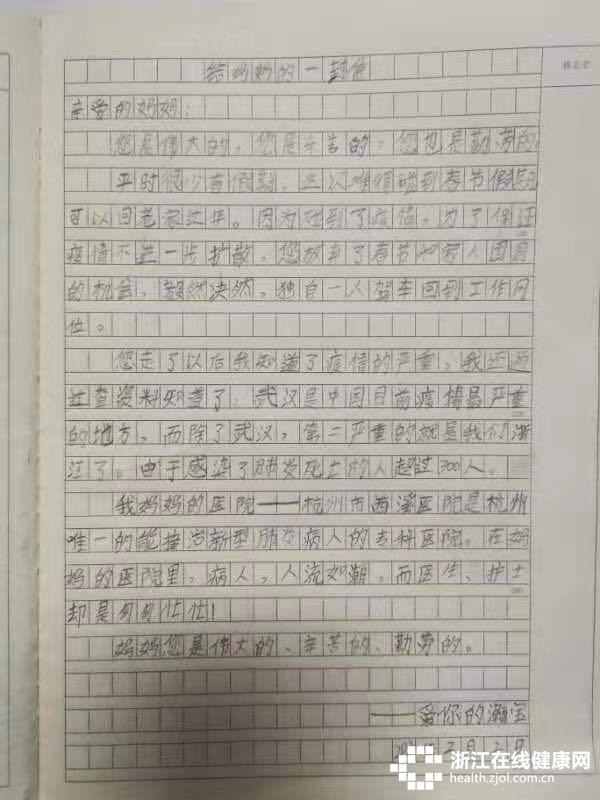 给妈妈的一封信
亲爱的妈妈：
您是伟大的，您是辛苦的，您也是勤劳的
平时很少有假期，这次难得碰到春节假期
可以回老家过年。因为碰到了疫情，为了保证
疫情不进一步扩散，您放弃了春节和家人团圆
的机会，毅然决然，独自一人驾车回到工作冈
位。
您走了以后我知道了疫情的严重，我还通
过查资料知道了，武汉是中国目前疫情最严重
的地方，而除了武汉，第二严重的就是我们浙
江了。由于感染了肺炎死亡的人超过300人。
我妈妈的医院——杭州市西溪医院是杭州
唯一的能接治新型肺炎病人的专科医院。在妈
妈的医院里，病人，人流如潮，而医生、护士
却是匆匆忙忙！
妈妈您是伟大的、辛苦的、勤劳的。
——爱你的瀚宝
月2日
浙江在线健康网
health.zjol.com.cn